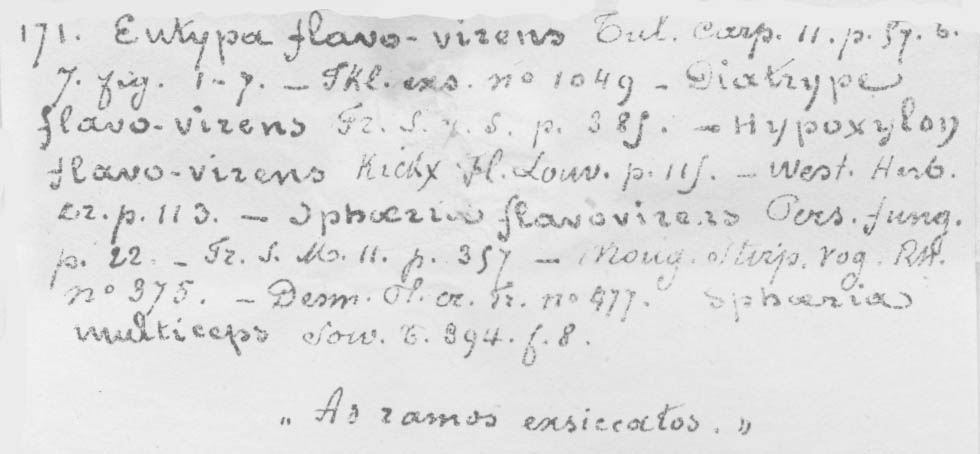 171. Eutypa flavo-virens Tul. Carp. 11. p. 57. t.
7. fig. 1-7. — Fkl. exs. no 1049 — Diatrype
flavo-virens Fr. S. v. S. p. 385. — Hypoxylon
flavo-virens Kickx Fl. Louv. p. 115. — West. Herb.
cr. p. 113. — Sphæria flavovirens Pers. fung.
p. 22. — Fr. S. M. 11. p. 357 — Moug. Stirp. vog. Rh.
no 375. — Desm. Pl. cr. Fr. no 477. Sphæria
multiceps Sow. t. 394. f. 8.
„ Ad ramos exsiccatos. „